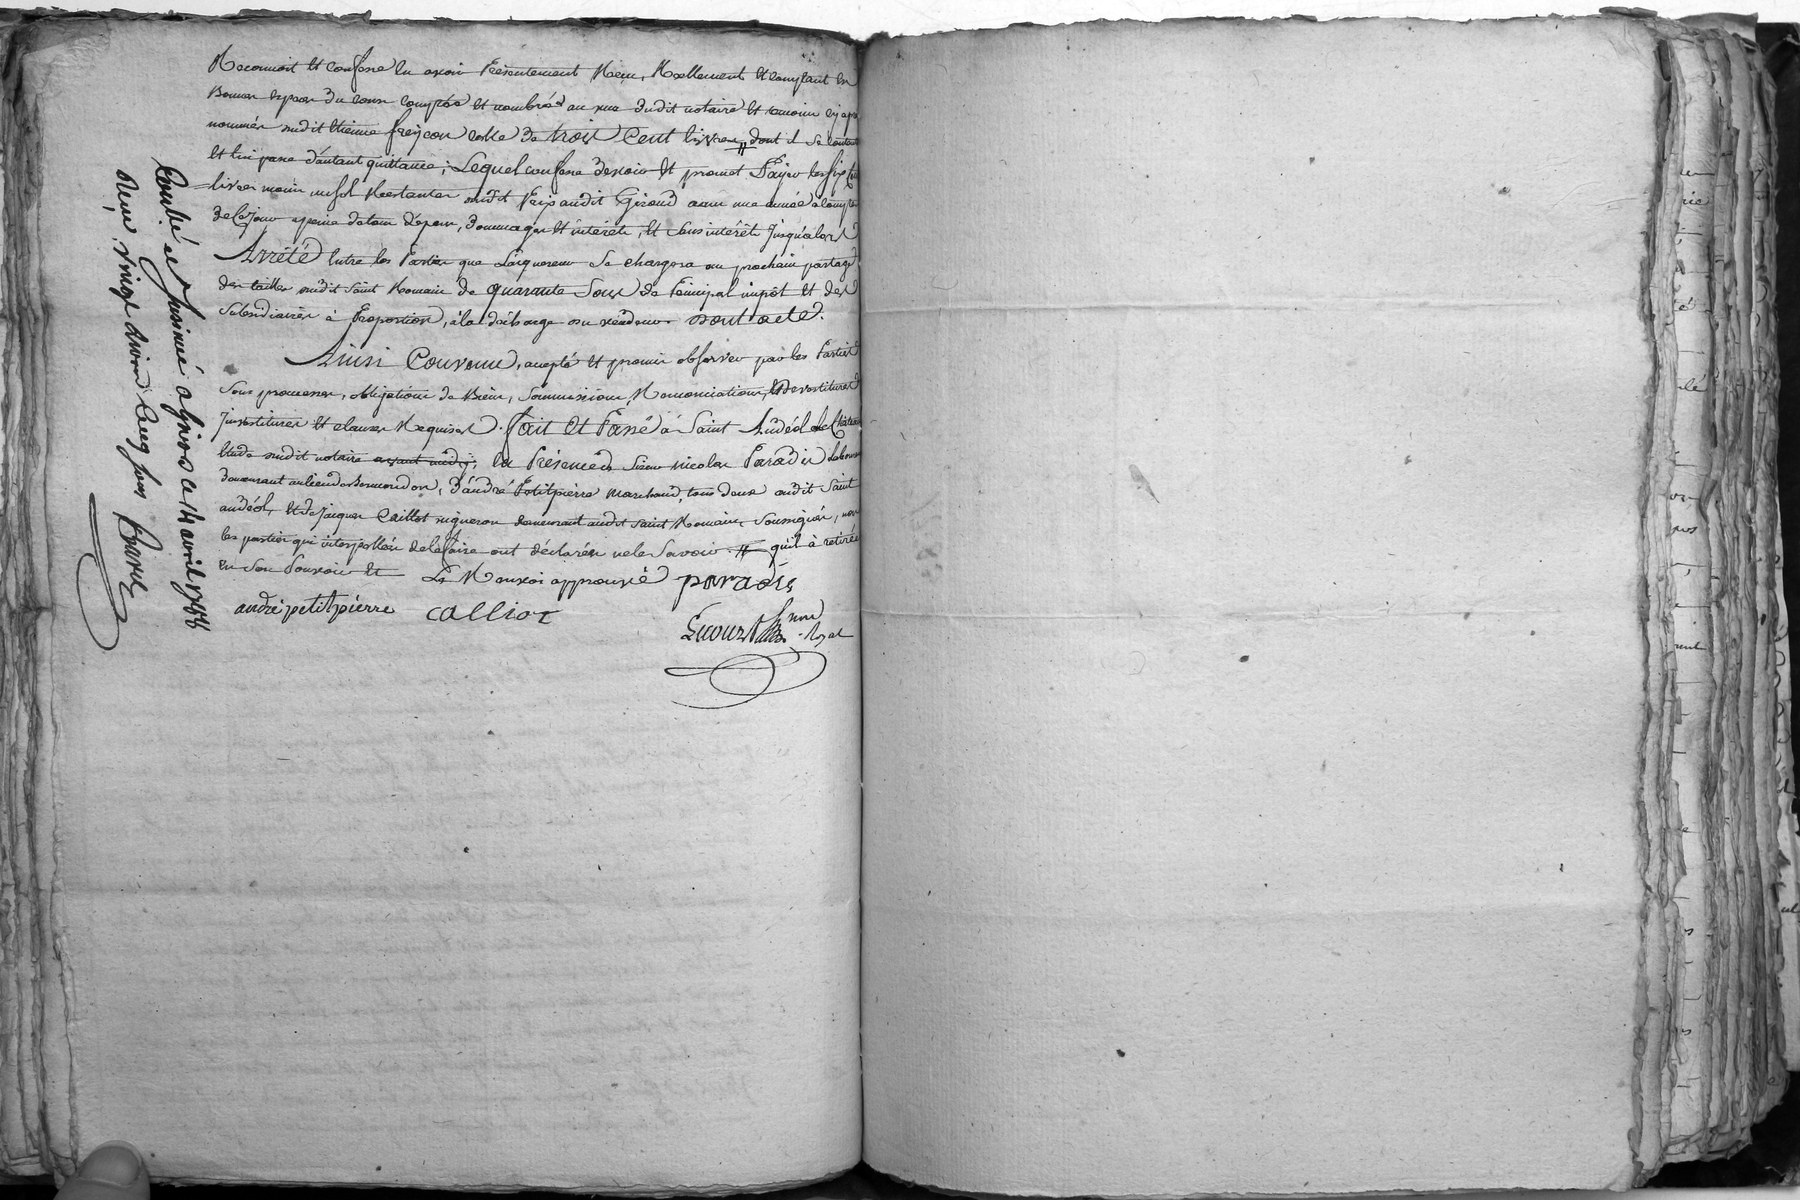 Reconnoit et confesse en avoir Présentement Reçu, Réellement et comptant en
Bonnes especes du cours comptées et nombrées au vue dudit notaire et temoins cy après
nommés dudit Etienne freiçon celle de trois Cent livres // dont il se contente
et lui passe d'autant quittance ; Lequel confesse devoir et promet Payer les six Cent
livres moins un sol Restantes dudit Prix audit Giroud dans une année à compter
de Ce jour a peine de tous dépens, dommages et intérêts, et sans intérêts jusqu'alors
Arrêté Entre les Parties que L'aquereur se chargera au prochain partage
des tailles dudit Saint Romain de quarante Sous de Principal impôt et des
Subsidiaires à Proportion, à la décharge du vendeur. dont acte.
Ainsi Convenu, accepté et promis observer par les Parties
Sous promesses, obligations de Biens, Soummissions, Renonciations, Devestitures
Investitures et clauses Requises. fait Et Passé à Saint Andéol le Château
Etude dudit notaire avant midy ; En Présences Sieur nicolas Paradis
demeurant au lieu de Bourrondon, d'andré Petitpierre Marchand, tous deux audit Saint
andéol, et de jacques Caillot vigneron demeurant audit Saint Romain, Soussignés, non
les parties qui interpellées de le faire ont déclarées ne le Savoir. // qu'il à retirées
en Son Pouvoir et Le Renvoi approuvé paradis
andré petitpierre calliot
nore Royal
Controlé et Insinué à Givors ce 14 avril 1788
Reçu vingt